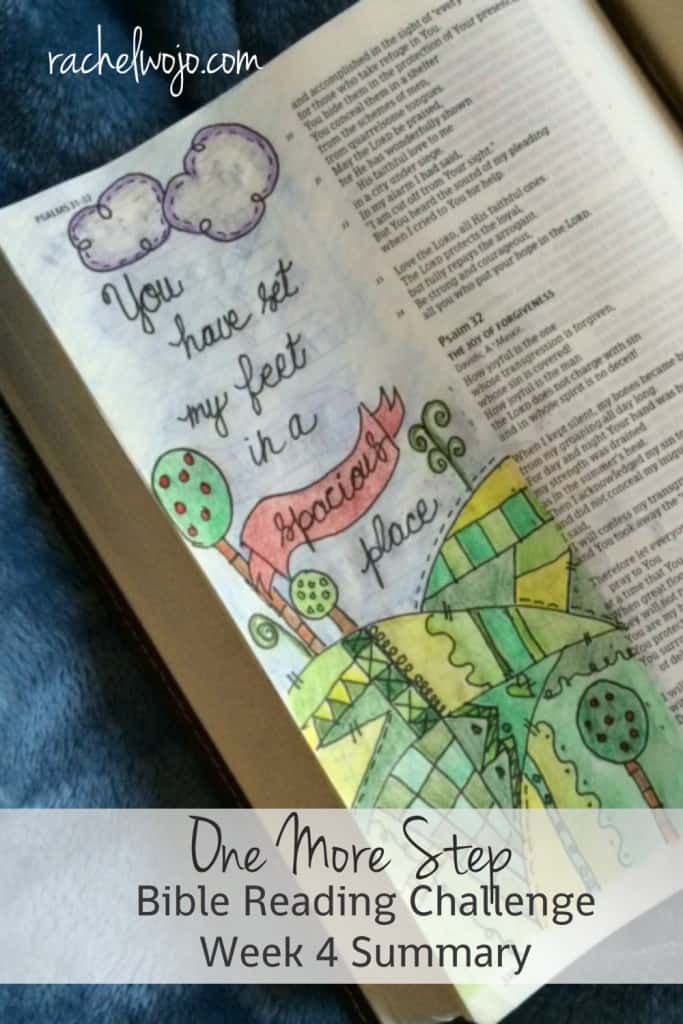 rachelwojo.com
PSALMS 31-32
You
have set
my feet
in a
spacious
place
and accomplished in the sight of "every
for those who take refuge in You.
You hide them in the protection of Your presence
You conceal them in a shelter
from the schemes of men,
from quarrelsome tongues.
May the LORD be praised,
for He has wonderfully shown
His faithful love to me
in a city under siege.
In my alarm I had said,
"I am cut off from Your sight."
But You heard the sound of my pleading
when I cried to You for help.
Love the LORD, all His faithful ones.
The LORD protects the loyal,
but fully repays the arrogant.
Be strong and courageous,
all you who put your hope in the LORD.
Psalm 32
THE JOY OF FORGIVENESS
Davidic. A Maskil.
How joyful is the one
whose transgression is forgiven,
whose sin is covered!
How joyful is the man
the LORD does not charge with sin
and in whose spirit is no deceit!
When I kept silent, my bones became b
from my groaning all day long.
For day and night Your hand was h
my strength was drained
as in the summer's heat.
Then I acknowledged my sin to
and did not conceal my iniqui
I said,
I will confess my transgr
and You took away the
Therefore let everyone
pray to You
at a time that You
When great floo
they will not
You are my h
You protect
You surr
of del
I wil
One More Step
Bible Reading Challenge
Week 4 Summary